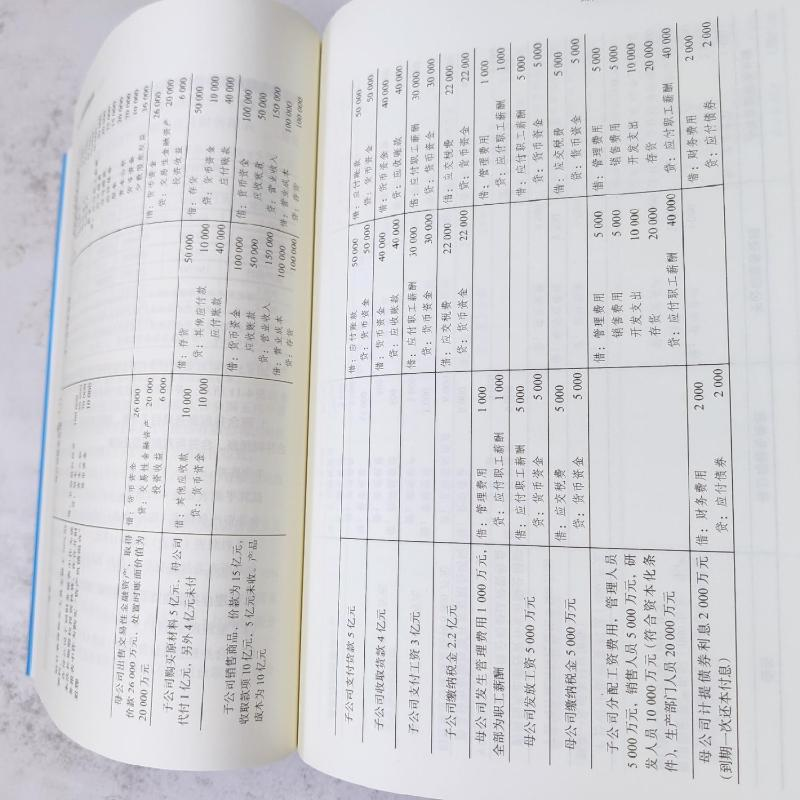 母公司出售交易性金融资产，取得
价款 26 000 万元，处置时账面价值为
20 000 万元
借：货币资金 26 000
贷：交易性金融资产 20 000
投资收益 6 000
借：货币资金 26 000
贷：交易性金融资产 20 000
投资收益 6 000
子公司购买原材料 5 亿元，母公司
代付 1 亿元，另外 4 亿元未付
借：其他应收款 10 000
贷：货币资金 10 000
借：存货 50 000
贷：其他应付款 10 000
应付账款 40 000
借：存货 50 000
贷：货币资金 10 000
应付账款 40 000
子公司销售商品，价款为 15 亿元，
收取款项 10 亿元，5 亿元未收。产品
成本为 10 亿元
借：货币资金 100 000
应收账款 50 000
贷：营业收入 150 000
借：营业成本 100 000
贷：存货 100 000
借：货币资金 100 000
应收账款 50 000
贷：营业收入 150 000
借：营业成本 100 000
贷：存货 100 000
子公司支付货款 5 亿元
借：应付账款 50 000
贷：货币资金 50 000
借：应付账款 50 000
贷：货币资金 50 000
子公司收取货款 4 亿元
借：货币资金 40 000
贷：应收账款 40 000
借：货币资金 40 000
贷：应收账款 40 000
子公司支付工资 3 亿元
借：应付职工薪酬 30 000
贷：货币资金 30 000
借：应付职工薪酬 30 000
贷：货币资金 30 000
子公司缴纳税金 2.2 亿元
借：应交税费 22 000
贷：货币资金 22 000
借：应交税费 22 000
贷：货币资金 22 000
母公司发生管理费用 1 000 万元，
全部为职工薪酬
借：管理费用 1 000
贷：应付职工薪酬 1 000
借：管理费用 1 000
贷：应付职工薪酬 1 000
母公司发放工资 5 000 万元
借：应付职工薪酬 5 000
贷：货币资金 5 000
借：应付职工薪酬 5 000
贷：货币资金 5 000
母公司缴纳税金 5 000 万元
借：应交税费 5 000
贷：货币资金 5 000
借：应交税费 5 000
贷：货币资金 5 000
子公司分配工资费用，管理人员
5 000 万元，销售人员 5 000 万元，研
发人员 10 000 万元（符合资本化条
件），生产部门人员 20 000 万元
借：管理费用 5 000
销售费用 5 000
开发支出 10 000
存货 20 000
贷：应付职工薪酬 40 000
借：管理费用 5 000
销售费用 5 000
开发支出 10 000
存货 20 000
贷：应付职工薪酬 40 000
母公司计提债券利息 2 000 万元
（到期一次还本付息）
借：财务费用 2 000
贷：应付债券 2 000
借：财务费用 2 000
贷：应付债券 2 000